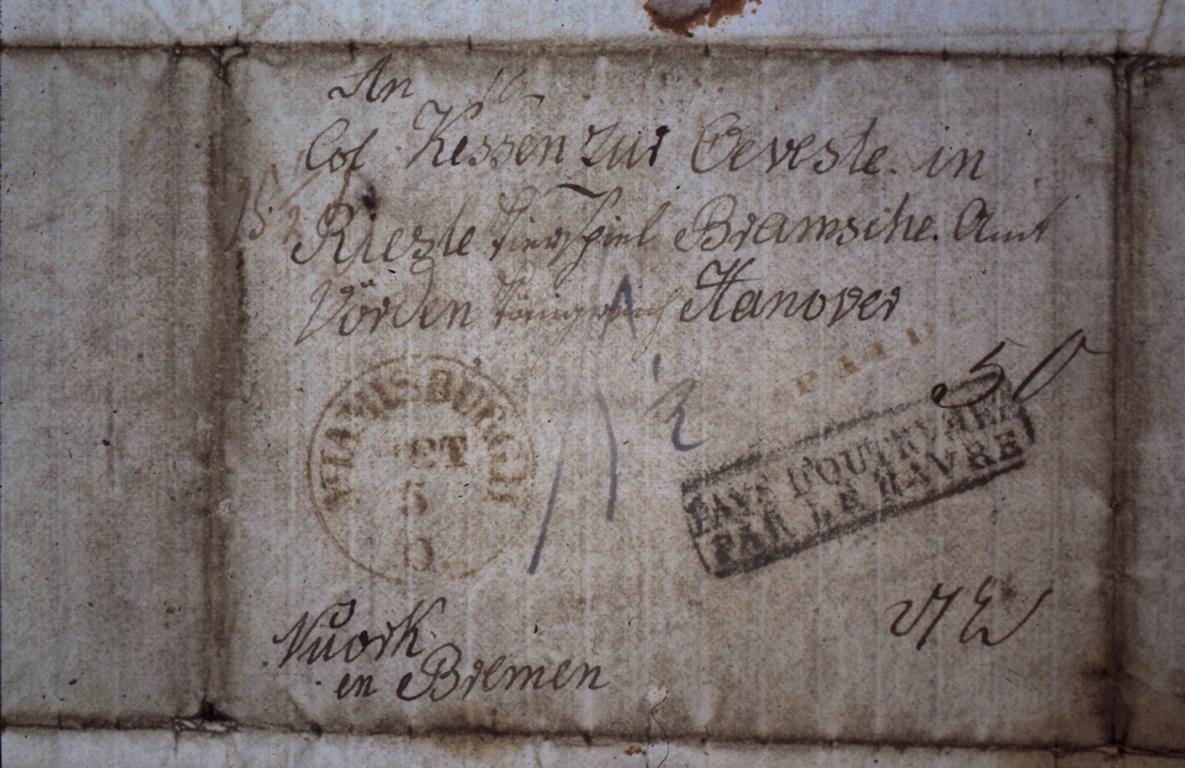 An
Col Kessen zur Oeveste. in
Rieste Kierspiel Bramsche. Amt
Vörden Königreich Hanover
PAID
50
MIAMISBURG
OCT
5
O.
PAYS D'OUTREMER
PAR LE HAVRE
Nuork
en Bremen